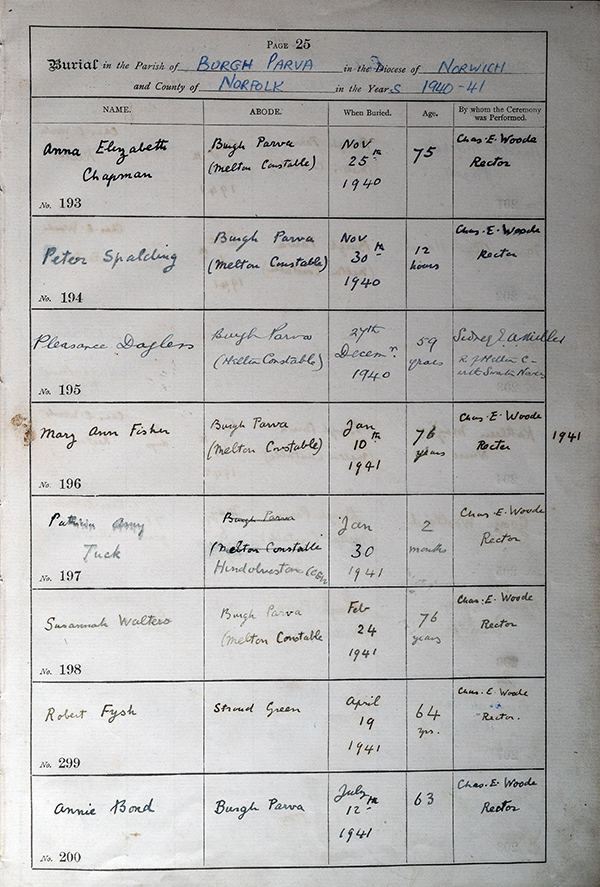 PAGE 25
Burial in the Parish of BURGH PARVA in the Diocese of NORWICH
and County of NORFOLK in the Years 1940-41
NAME. ABODE. When Buried. Age. By whom the Ceremony was Performed.
Anna Elizabeth
Chapman
No. 193
Burgh Parva
(Melton Constable)
Nov
25th
1940
75
Chas. E. Woode
Rector
Peter Spalding
No. 194
Burgh Parva
(Melton Constable)
Nov
30th
1940
12
hours
Chas. E. Woode
Rector
Pleasance
No. 195
Burgh Parva
(Milton Constable)
27th
Decemr.
1940
59
years
Mary Ann Fisher
No. 196
Burgh Parva
(Melton Constable)
Jan
10th
1941
76
years
Chas. E. Woode
Rector
1941
Patricia Amy
Tuck
No. 197
Burgh Parva
(Melton Constable
Hindolveston
Jan
30
1941
2
months
Chas. E. Woode
Rector
Susannah Walters
No. 198
Burgh Parva
(Melton Constable
Feb
24
1941
76
years
Chas. E. Woode
Rector
Robert Fysh
No. 299
Stroud Green
April
19
1941
64
yrs.
Chas. E Woode
Rector.
Annie Bond
No. 200
Burgh Parva
July
12th
1941
63
Chas. E. Woode
Rector